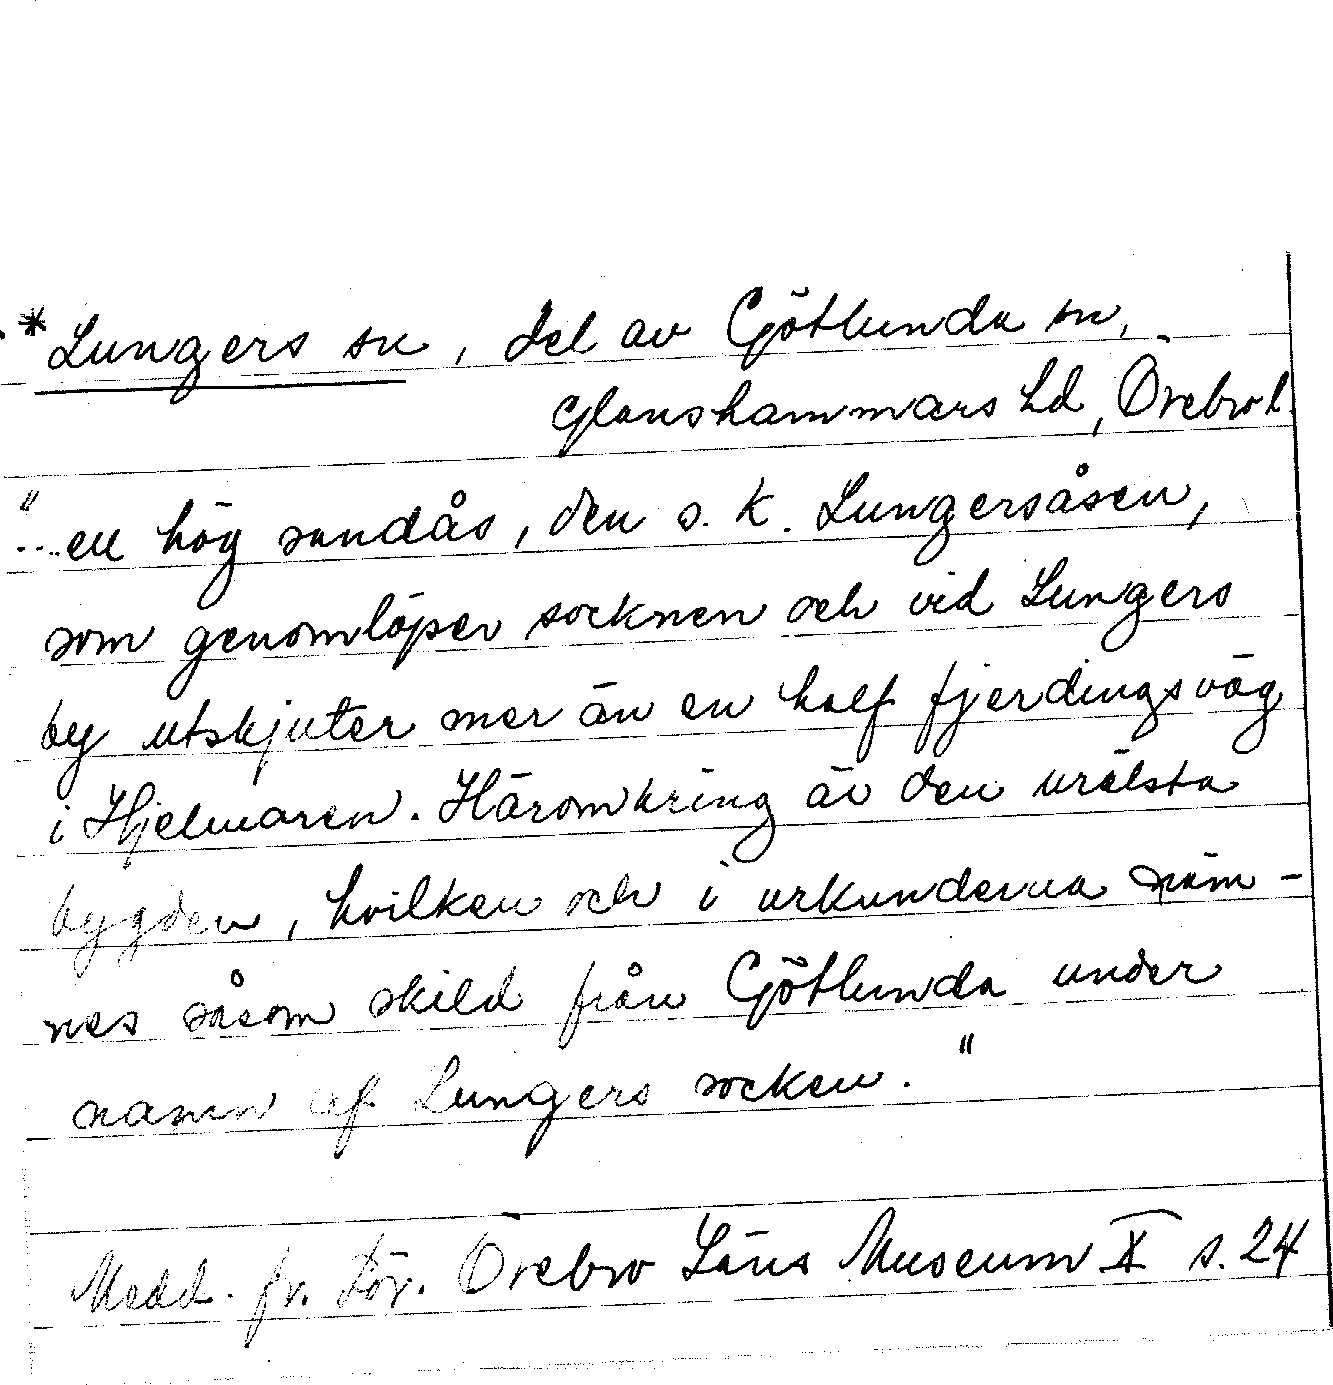 *Lungers sn, del av Götlunda sn,
Glanshammars hd, Örebro l.
"...en hög sandås, den s. k. Lungersåsen,
som genomlöper socknen och vid Lungers
by utskjuter mer än en half fjerdingsväg
i Hjelmaren. Häromkring är den urälsta
bygden, hvilken och i urkunderna näm-
nes såsom skild från Götlunda under
namn af Lungers socken."
Medd. fr. För. Örebro Läns Museum X s. 24